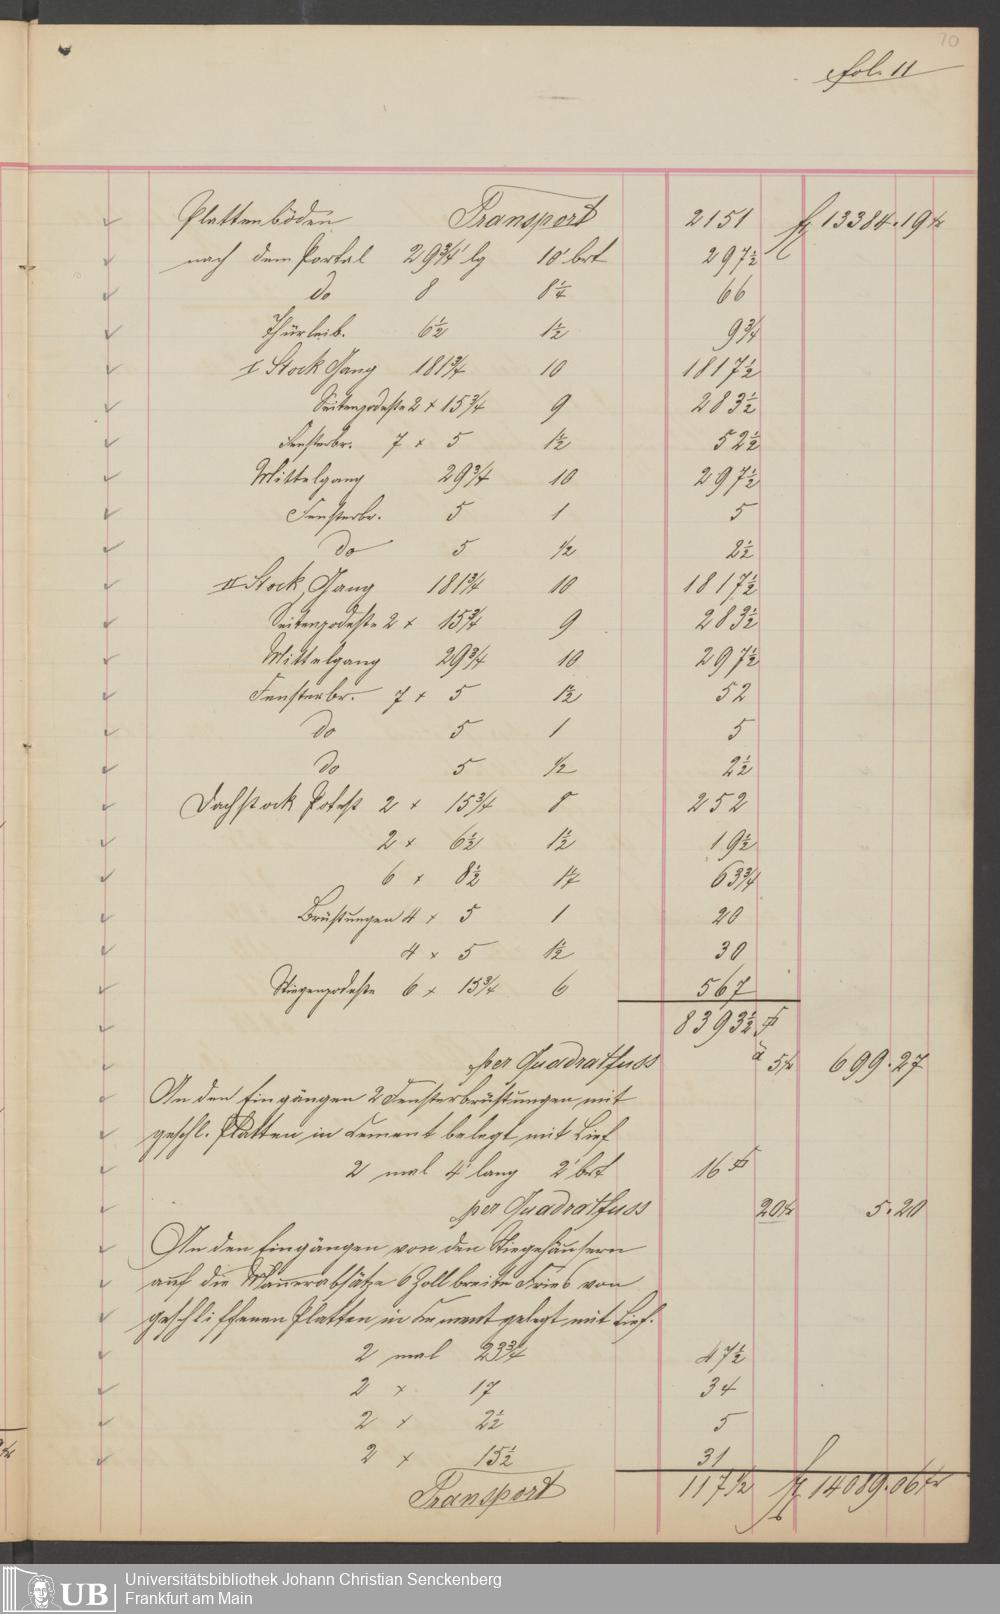 70
fol. 11
Plattenböden Transport 2151 fl 13384.19 kr
nach dem Portal 29 3/4' lg 10' brt 297 1/2
do 8 8 1/4 66
Thürleib. 6 1/2 1 1/2 9 3/4
I Stock Gang 181 3/4 10 1817 1/2
Seitenpodeste 2 x 15 3/4 9 283 1/2
Fensterbr. 7 x 5 1 1/2 52 1/2
Mittelgang 29 3/4 10 297 1/2
Fensterbr. 5 1 5
do 5 1/2 2 1/2
II Stock, Gang 181 3/4 10 1817 1/2
Seitenpodeste 2 x 15 3/4 9 283 1/2
Mittelgang 29 3/4 10 297 1/2
Fensterbr. 7 x 5 1 1/2 52
do 5 1 5
do 5 1/2 2 1/2
Dachstock Potest 2 x 15 3/4 8 252
2 x 6 1/2 1 1/2 19 1/2
6 x 8 1/2 63 3/4
Brüstungen 4 x 5 1 20
4 x 5 1 1/2 30
Stiegenpodeste 6 x 15 3/4 6 567
8393 1/2
per Quadratfuss à 5 kr 699.27
An den Eingängen 2 Fensterbrüstungen mit
geschl. Platten in Cement belegt mit Lief
2 mal 4' lang 2' brt 16
per Quadratfuss 20 kr 5.20
An den Eingängen von den Stiegehäusern
auf die Mauerabsätze 6 Zoll breite Fries von
geschliffenen Platten in Cement gelegt mit Lief.
2 mal 23 3/4 47 1/2
2 x 17 34
2 x 2 1/2 5
2 x 15 1/2 31
Transport 117 1/2 fl 14089.06 kr
UB
Universitätsbibliothek Johann Christian Senckenberg
Frankfurt am Main